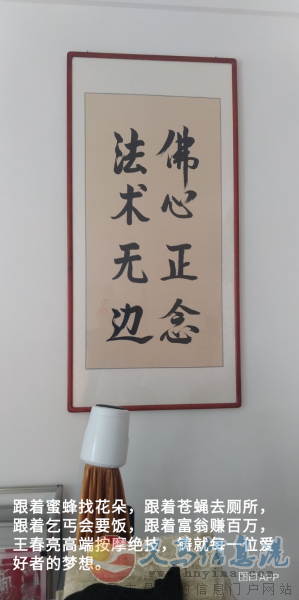 佛心正念
法术无边
跟着蜜蜂找花朵，跟着苍蝇去厕所，
跟着乞丐会要饭，跟着富翁赚百万，
王春亮高端按摩绝技，就每一位爱
好者的梦想。
信息门户网站
APP